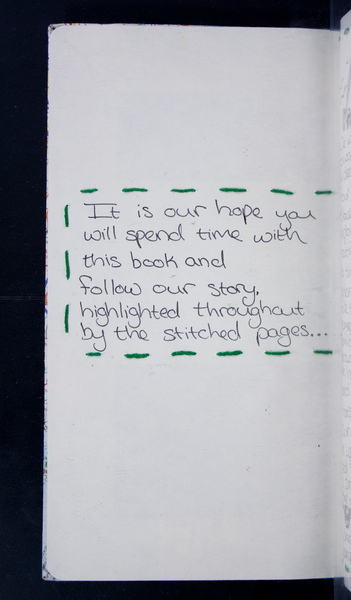 It is our hope you
will spend time with
this book and
follow our story,
highlighted throughout
by the stitched pages...